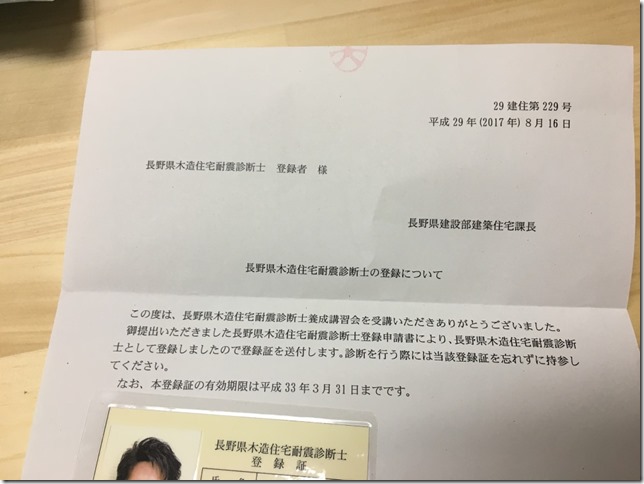 29建住第229号
平成29年(2017年)8月16日
長野県木造住宅耐震診断士 登録者 様
長野県建設部建築住宅課長
長野県木造住宅耐震診断士の登録について
この度は、長野県木造住宅耐震診断士養成講習会を受講いただきありがとうございました。
御提出いただきました長野県木造住宅耐震診断士登録申請書により、長野県木造住宅耐震診断
士として登録しましたので登録証を送付します。診断を行う際には当該登録証を忘れずに持参し
てください。
なお、本登録証の有効期限は平成33年3月31日までです。
長野県木造住宅耐震診断士
登録証